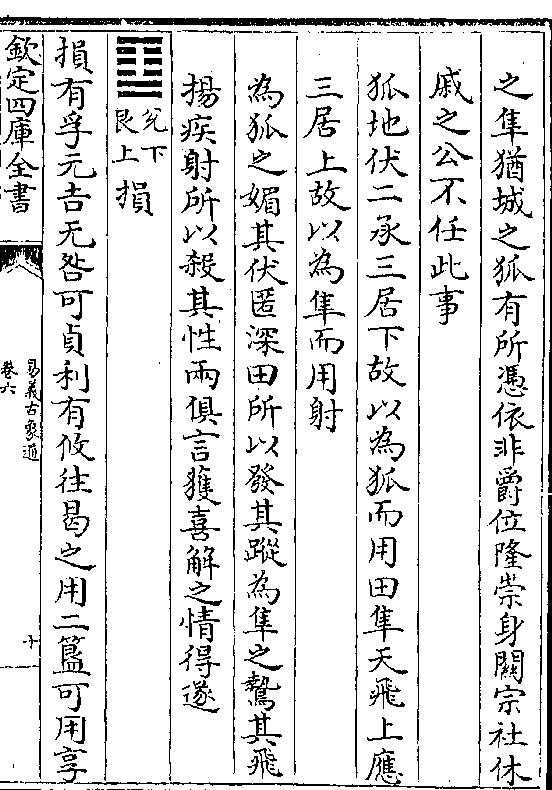 之隼猶城之狐有所憑依非爵位隆崇身關宗社休
戚之公不任此事
狐地伏二承三居下故以為狐而用田隼天飛上應
三居上故以為隼而用射
為狐之媚其伏匿深田所以發其蹤為隼之鷙其飛
揚疾射所以殺其性兩俱言獲喜解之情得遂
䷨兌下艮上損
損有孚元吉无咎可貞利有攸往曷之用二簋可用享
欽定四庫全書
易義古象通
卷六
十